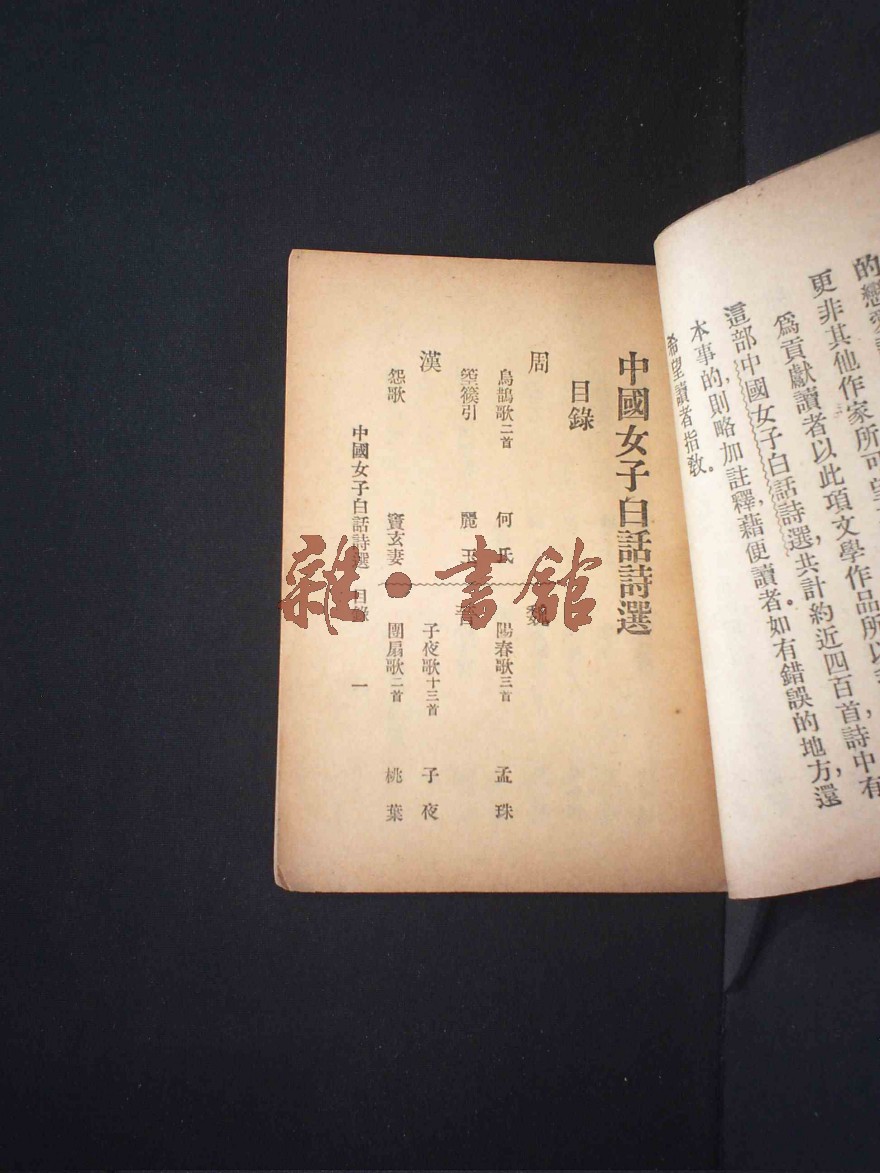 的戀愛
更非其他作家所可望
爲貢獻讀者以此項文學作品所以
這部中國女子白話詩選,共計約近四百首詩中有
本事的,則略加註釋,藉便讀者。如有錯誤的地方,還
希望讀者指敎。
中國女子白話詩選
目錄
周
烏鵲歌二首 何氏
箜篌引 麗玉
漢
怨歌 竇玄妻
魏
陽春歌三首 孟珠
晉
子夜歌十三首 子夜
團扇歌二首 桃葉
中國女子白話詩選 目錄 一
雜·書館